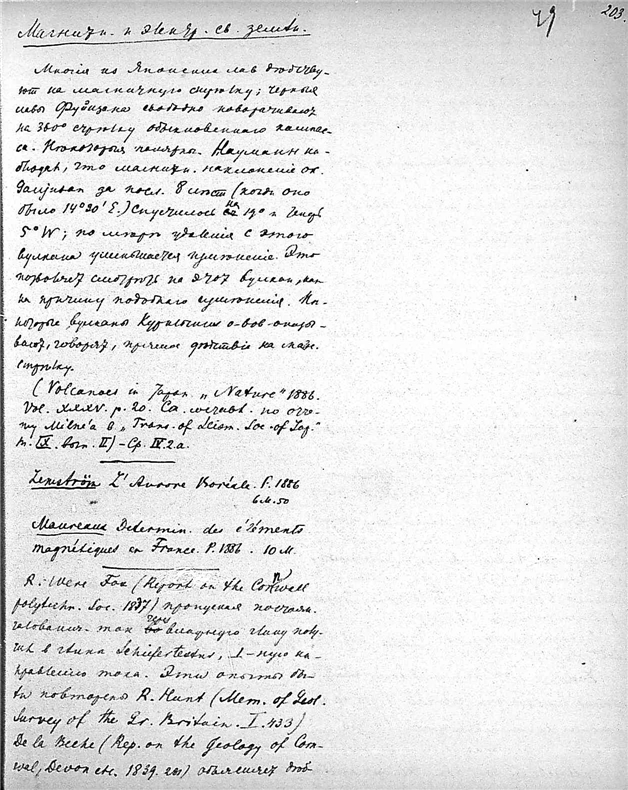 49 203.
Магнитн. и электр. св. земли.
Многія из Японских лав действу-
ют на магнитную стрелку; черныя
лавы Фузіяма свободно поворачивают
на 360° стрелку обыкновенного компас-
са. Некоторыя полярны. Науманн на-
блюдал, что магнитн. наклоненіе ок.
за посл. 8 лет (когда оно
было 14°30' E.) спустилось на 19° и
5° W; по мере удаленія с этого
вулкана уменьшается притяженіе. Это
позволяет смотреть на этот вулкан, как
на причину подобнаго притяженія. Не-
которые вулканы Курильских о-вов оказы-
вают, говорят, прямое действіе на магн.
стрелку.
(Volcanoes in Japan „Nature" 1886.
Vol. XXXV. p. 20. по отче-
ту Milne'a в „Trans. of Seism. Soc. of Jap."
т. IX. вып. II) – Ср. IV.2.a.
Lemström L'Aurore Boréale. P. 1886
6 M. 50
Moureaux Determin. des éléments
magnétiques en France. P. 1886. 10 M.
R. Were Fox (Report on the Cornwall
polytechn. Soc. 1837) пропуская
ток чрез влажную глину полу-
чил в глине Schiefertextur, ⊥-ную на-
правленію тока. Эти опыты бы-
ли повторены R. Hunt (Mem. of Geol.
Survey of the Gr. Britain. I. 433)
De la Beche (Rep. on the Geology of Corn-
wal, Devon etc. 1839. 281) объясняет